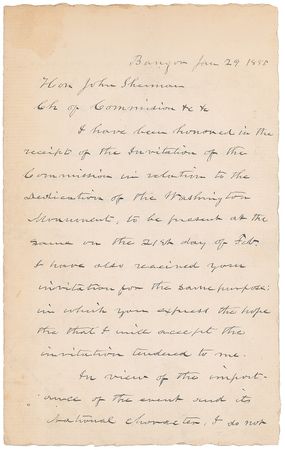 Bangor Jan 29 1885
Hon John Sherman
Ch of Commission &c &c
I have been honored in the
receipt of the Invitation of the
Commission in relation to the
Dedication of the Washington
Monument, to be present at the
same on the 21st day of Feb.
I have also received your
invitation for the same purpose:
in which you express the hope
the that I will accept the
invitation tendered to me.
In view of the import-
ance of the event and its
National character, I do not